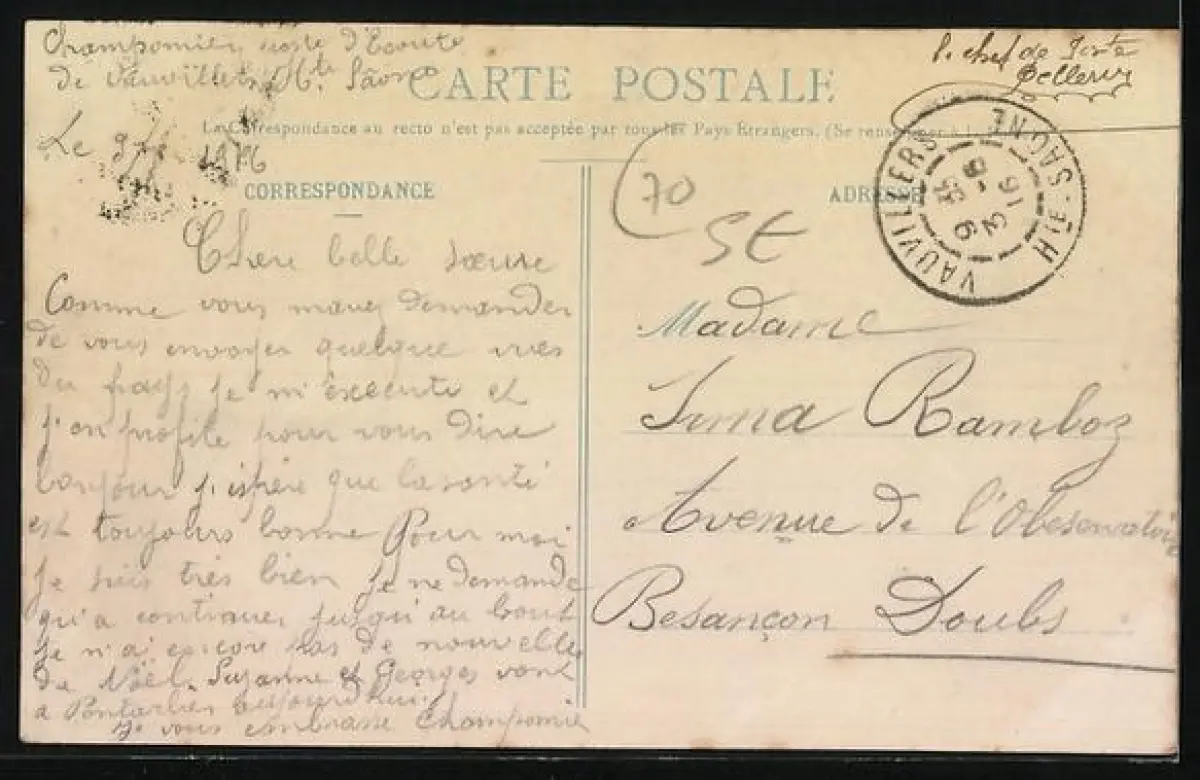 Champomier, poste d'Ecoute
de Vauvillers Hte Saône
Le 1916
P. chef de Poste
CARTE POSTALE
La Correspondance au recto n'est pas acceptée par tous les Pays Etrangers. (Se renseigner à la
CORRESPONDANCE
ADRESSE
VAUVILLERS
HTE-SAÔNE
9 3 16
70
SE
Chere belle sœure
Comme vous mavez demander
de vous envoyer quelque vues
du pays je m'éxecute et
j'en profite pour vous dire
bonjour j'éspère que la santé
est toujours bonne Pour moi
je suis très bien je ne demande
qu'a continuer jusqu'au bout
je n'ai encore pas de nouvelle
de Noël. Suzanne et Georges vont
a Pontarlier aujourd'hui.
Je vous embrasse Champomier
Madame
Irma Ramboz
Avenue de l'Obeservatoire
Besançon Doubs